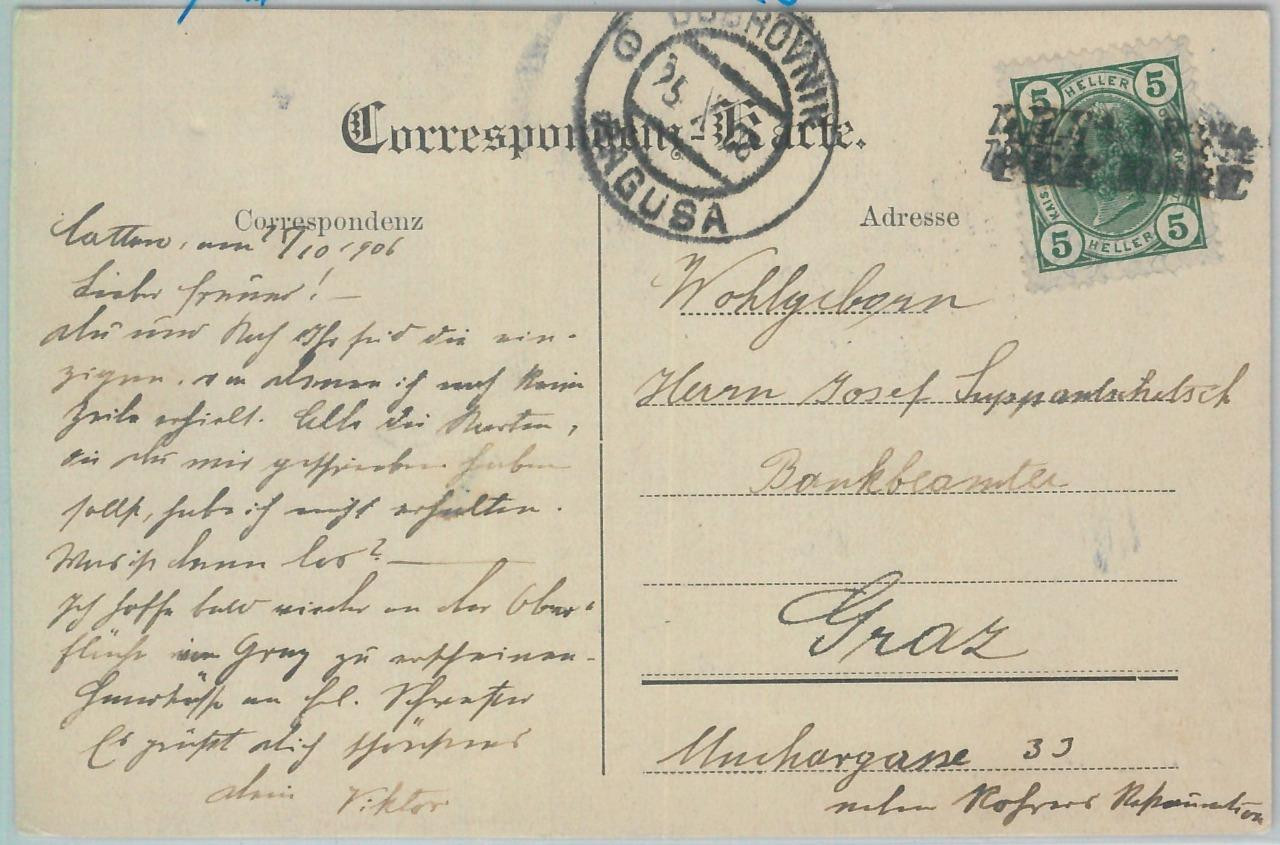 Correspondenz-Karte.
DUBROVNIK
RAGUSA
25
5 HELLER 5
5 HELLER 5
Correspondenz
Adresse
Cattaro, am /10 1906
Lieber Freund! —
Du und Ihr seid die ein-
zigen, von denen ich noch keine
Zeile erhielt. Alle die Karten,
die du mir geschrieben haben
sollst, habe ich nicht erhalten.
Was ist denn los? —
Ich hoffe bald wieder an der Ober-
fläche von Graz zu erscheinen.
Handküsse an Frl. Schwester
Es grüßt dich schönstens
dein Viktor
Wohlgeborn
Herrn Josef Suppantschitsch
Bankbeamter
Graz
Muchargasse 33
neben Rohrers Restauration